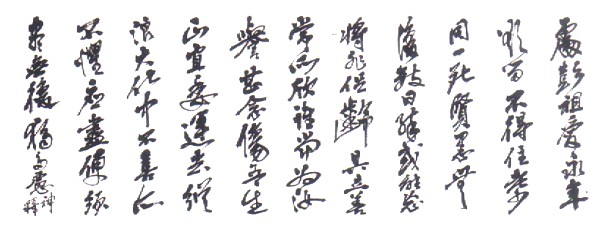 處彭祖愛永年
欲留不得住老少
同一死賢愚無
復數日醉或能忘
將非促齡具立善
常所欣誰當為汝
譽甚念傷吾生
正宜委運去縱
浪大化中不喜亦
不懼應盡便須
盡無復獨多慮神釋